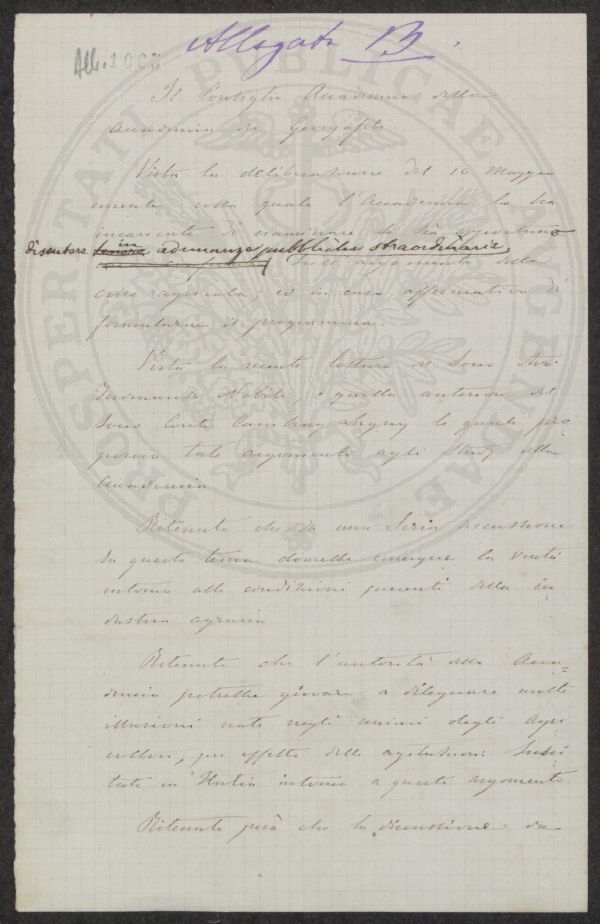 Allegato B.
All. 1003
Il Consiglio Accademico della
Accademia dei Georgofili
Vista la deliberazione del 10 Maggio
colla quale l'Accademia lo ha
incaricato di esaminare se sia opportuno
discutere in adunanze pubbliche straordinarie
sull'argomento della
crisi agricola, ed in caso affermativo di
formularne il programma.
Vista la recente lettura del Socio Avv.
Ferdinando Nobili, e quella anteriore del
Socio Conte Cambray Digny le quali pro=
posero tale argomento agli Studj della
Accademia
Ritenuto che da una Seria discussione
su questo tema dovrebbe emergere la verità
intorno alle condizioni presenti della in=
dustria agraria
Ritenuto che l'autorità della Acca=
demia potrebbe giovare a dileguare molte
illusioni nate negli animi degli Agri
cultori, per effetto delle agitazioni Susci
tate in Italia intorno a questo argomento.
Ritenuto però che la discussione da
PROSPERITATI PUBLICAE AUGENDAE